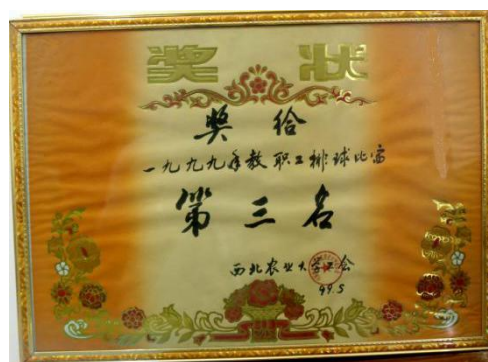 奖状
奖给
一九九九年教职工排球比赛
第三名
西北农业大学工会
99.5